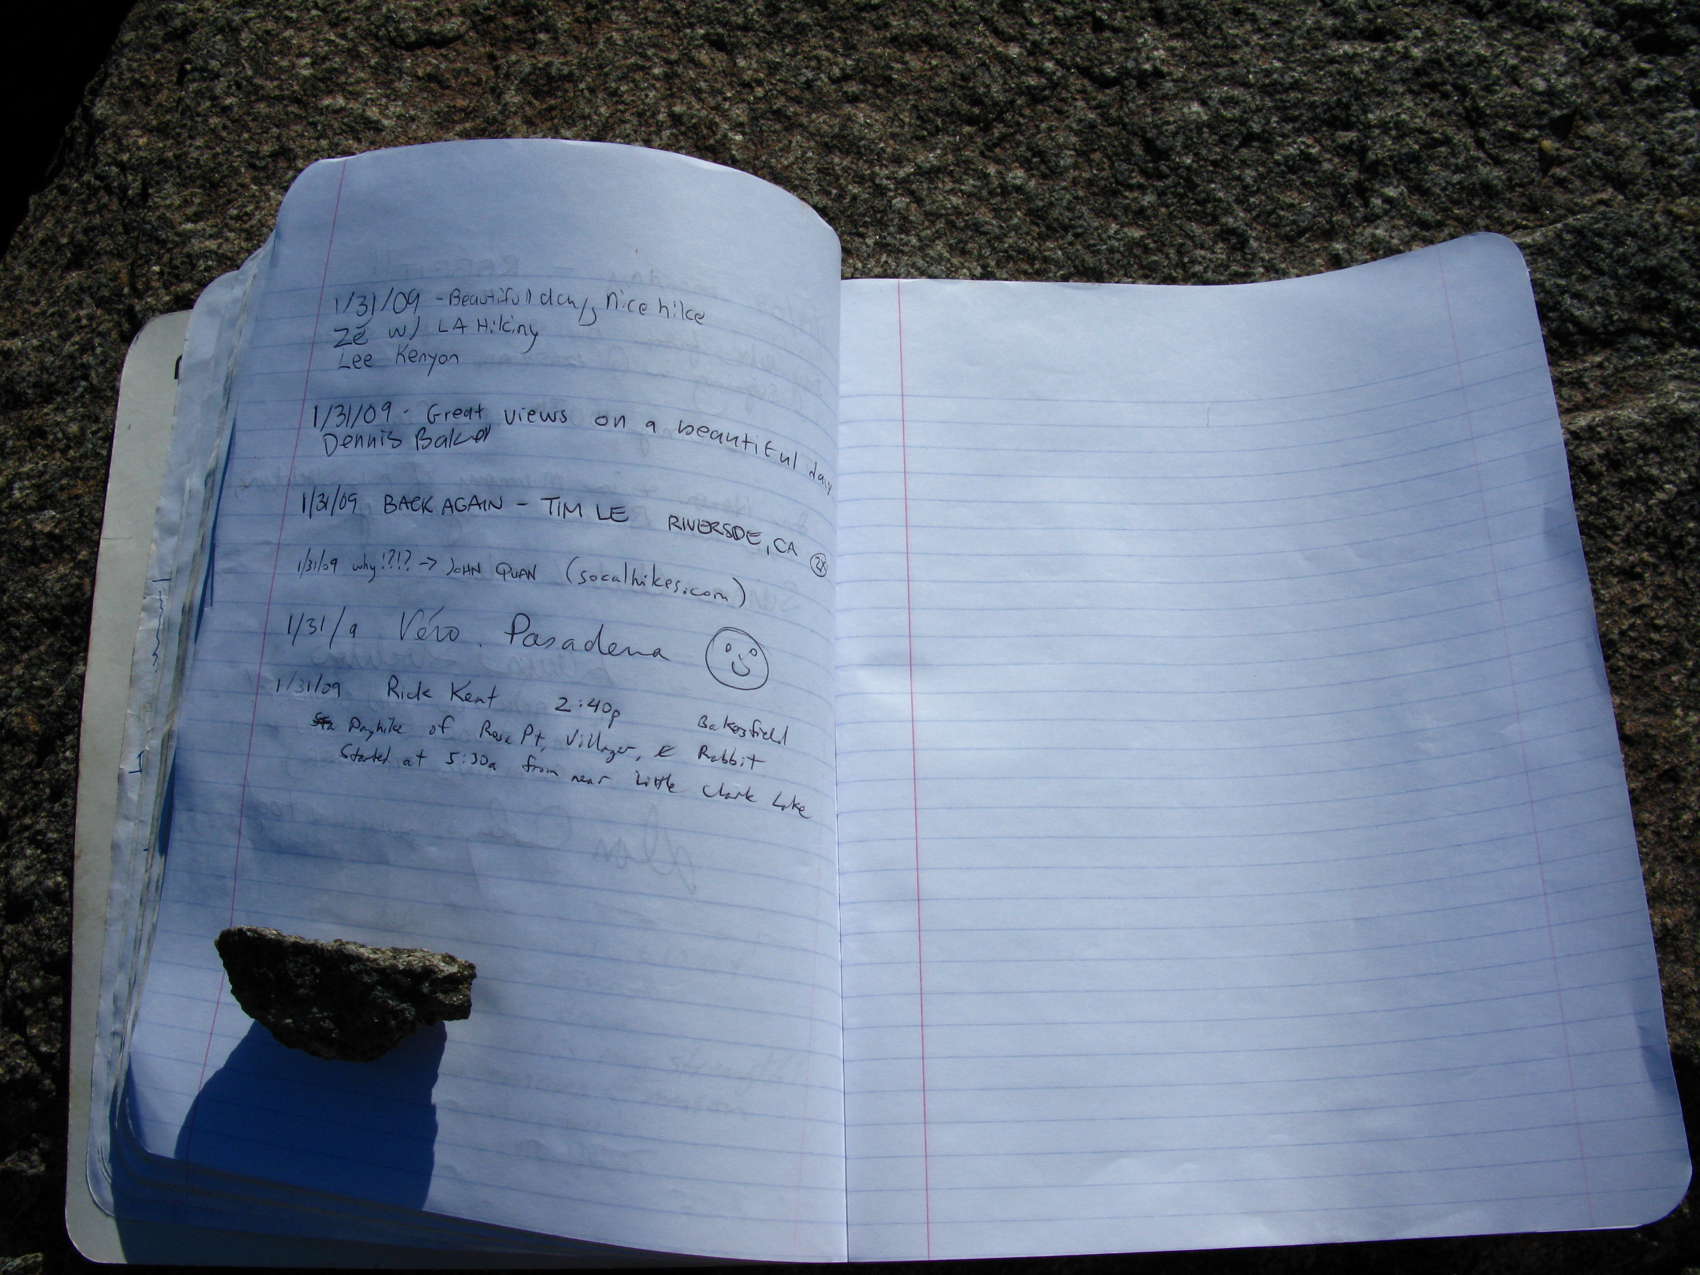 1/31/09 - Beautiful day, nice hike
Zé w/ LA Hiking
Lee Kenyon
1/31/09 - Great views on a beautiful day
Dennis Baker
1/31/09 BACK AGAIN - TIM LE RIVERSIDE, CA 2X
1/31/09 why!?!? → JOHN QUAN (socalhikes.com)
1/31/9 Véro. Pasadena
1/31/09 Rick Kent 2:40p Bakersfield
Dayhike of Rosa Pt, Villager, & Rabbit
Started at 5:30a from near Little Clark Lake